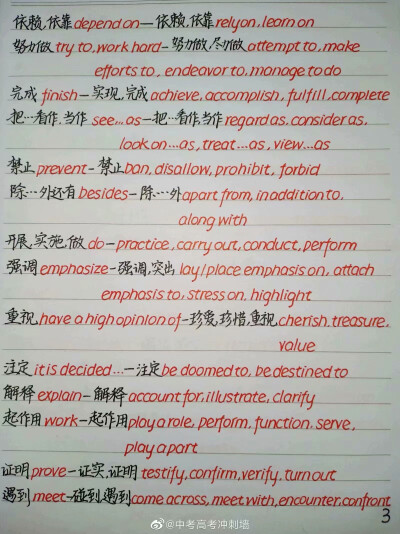 依赖,依靠 depend on—依赖,依靠 rely on, learn on
努力做 try to, work hard-努力做,尽力做 attempt to, make
efforts to, endeavor to, manage to do
完成 finish-实现,完成 achieve, accomplish, fulfill, complete
把…看作,当作 see...as-把…看作,当作 regard as, consider as,
look on...as, treat...as, view...as
禁止 prevent-禁止 ban, disallow, prohibit, forbid
除…外还有 besides-除…外 apart from, in addition to,
along with
开展,实施,做 do-practice, carry out, conduct, perform
强调 emphasize-强调,突出 lay/place emphasis on, attach
emphasis to, stress on, highlight
重视, have a high opinion of-珍爱,珍惜,重视 cherish, treasure,
value
注定 it is decided...-注定 be doomed to, be destined to
解释 explain-解释 account for, illustrate, clarify
起作用 work-起作用 play a role, perform, function, serve,
play a part
证明 prove-证实,证明 testify, confirm, verify, turn out
遇到 meet-碰到,遇到 come across, meet with, encounter, confront
3
@中考高考冲刺墙